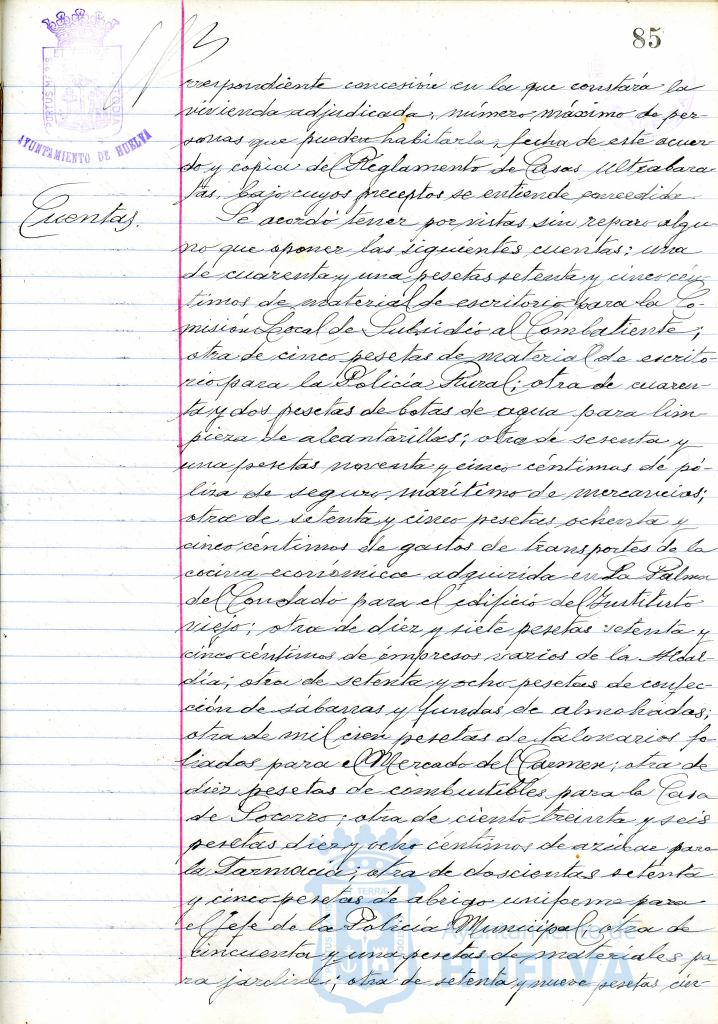 85
PORTUS MARIS
AYUNTAMIENTO DE HUELVA
Cuentas.
rrespondiente concesión en la que constará la
vivienda adjudicada, número máximo de per-
sonas que pueden habitarla, fecha de este acuer-
do y copia del Reglamento de Casas Ultrabara-
tas, bajo cuyos preceptos se entiende concedida.
Se acordó tener por vistas sin reparo algu-
no que oponer las siguientes cuentas: una
de cuarenta y una pesetas setenta y cinco cén-
timos de material de escritorio para la Co-
misión Local de Subsidio al Combatiente;
otra de cinco pesetas de material de escrito-
rio para la Policía Rural; otra de cuaren-
ta y dos pesetas de botas de agua para lim-
pieza de alcantarillas; otra de sesenta y
una pesetas noventa y cinco céntimos de pó-
liza de seguro marítimo de mercancias;
otra de setenta y cinco pesetas ochenta y
cinco céntimos de gastos de transportes de la
cocina económica adquirida en La Palma
del Condado para el edificio del Instituto
viejo; otra de diez y siete pesetas setenta y
cinco céntimos de impresos varios de la Alcal-
día; otra de setenta y ocho pesetas de confec-
ción de sábanas y fundas de almohadas;
otra de mil cien pesetas de talonarios fo-
liados para el Mercado del Carmen; otra de
diez pesetas de combustibles para la Casa
de Socorro; otra de ciento treinta y seis
pesetas diez y ocho céntimos de azúcar para
la Farmacia; otra de doscientas setenta
y cinco pesetas de abrigo uniforme para
el Jefe de la Policía Municipal; otra de
cincuenta y una pesetas de materiales pa-
ra jardines; otra de setenta y nueve pesetas cin-
Ayuntamiento de
HUELVA